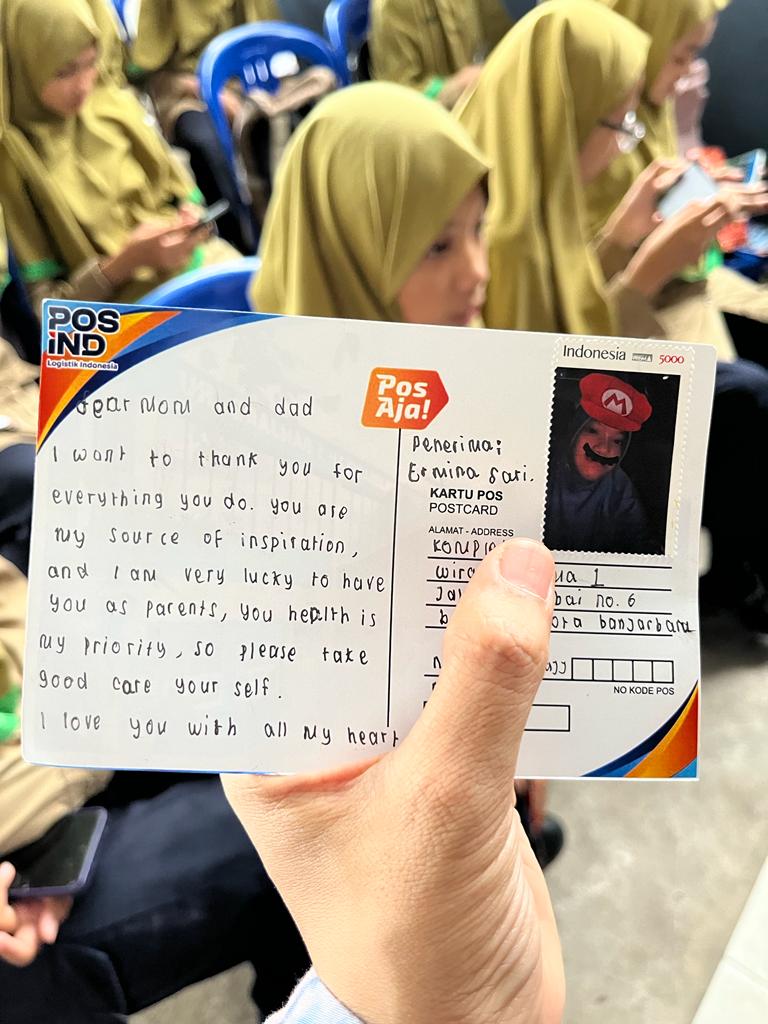 POS
IND
Logistik Indonesia
Dear Mom and dad
I want to thank you for
everything you do. you are
my source of inspiration,
and I am very lucky to have
you as parents, you health is
my priority, so please take
good care your self.
I love you with all my heart
Pos
Aja!
Indonesia 5000
M
Penerima:
Ermina Sari.
KARTU POS
POSTCARD
ALAMAT - ADDRESS
1
no. 6
banjarbaru
NO KODE POS